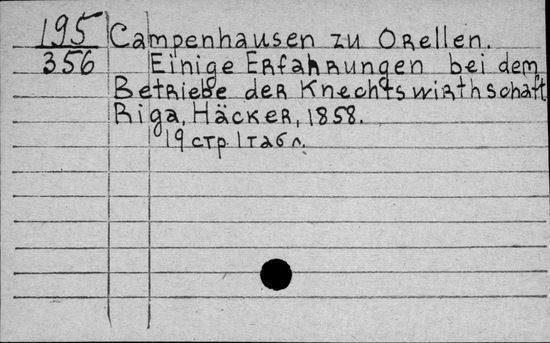 195 Campenhausen zu Orellen.
356 Einige Erfahrungen bei dem
Betriebe der Knechtswirthschaft
Riga, Häcker, 1858.
19 стр. 1 табл.